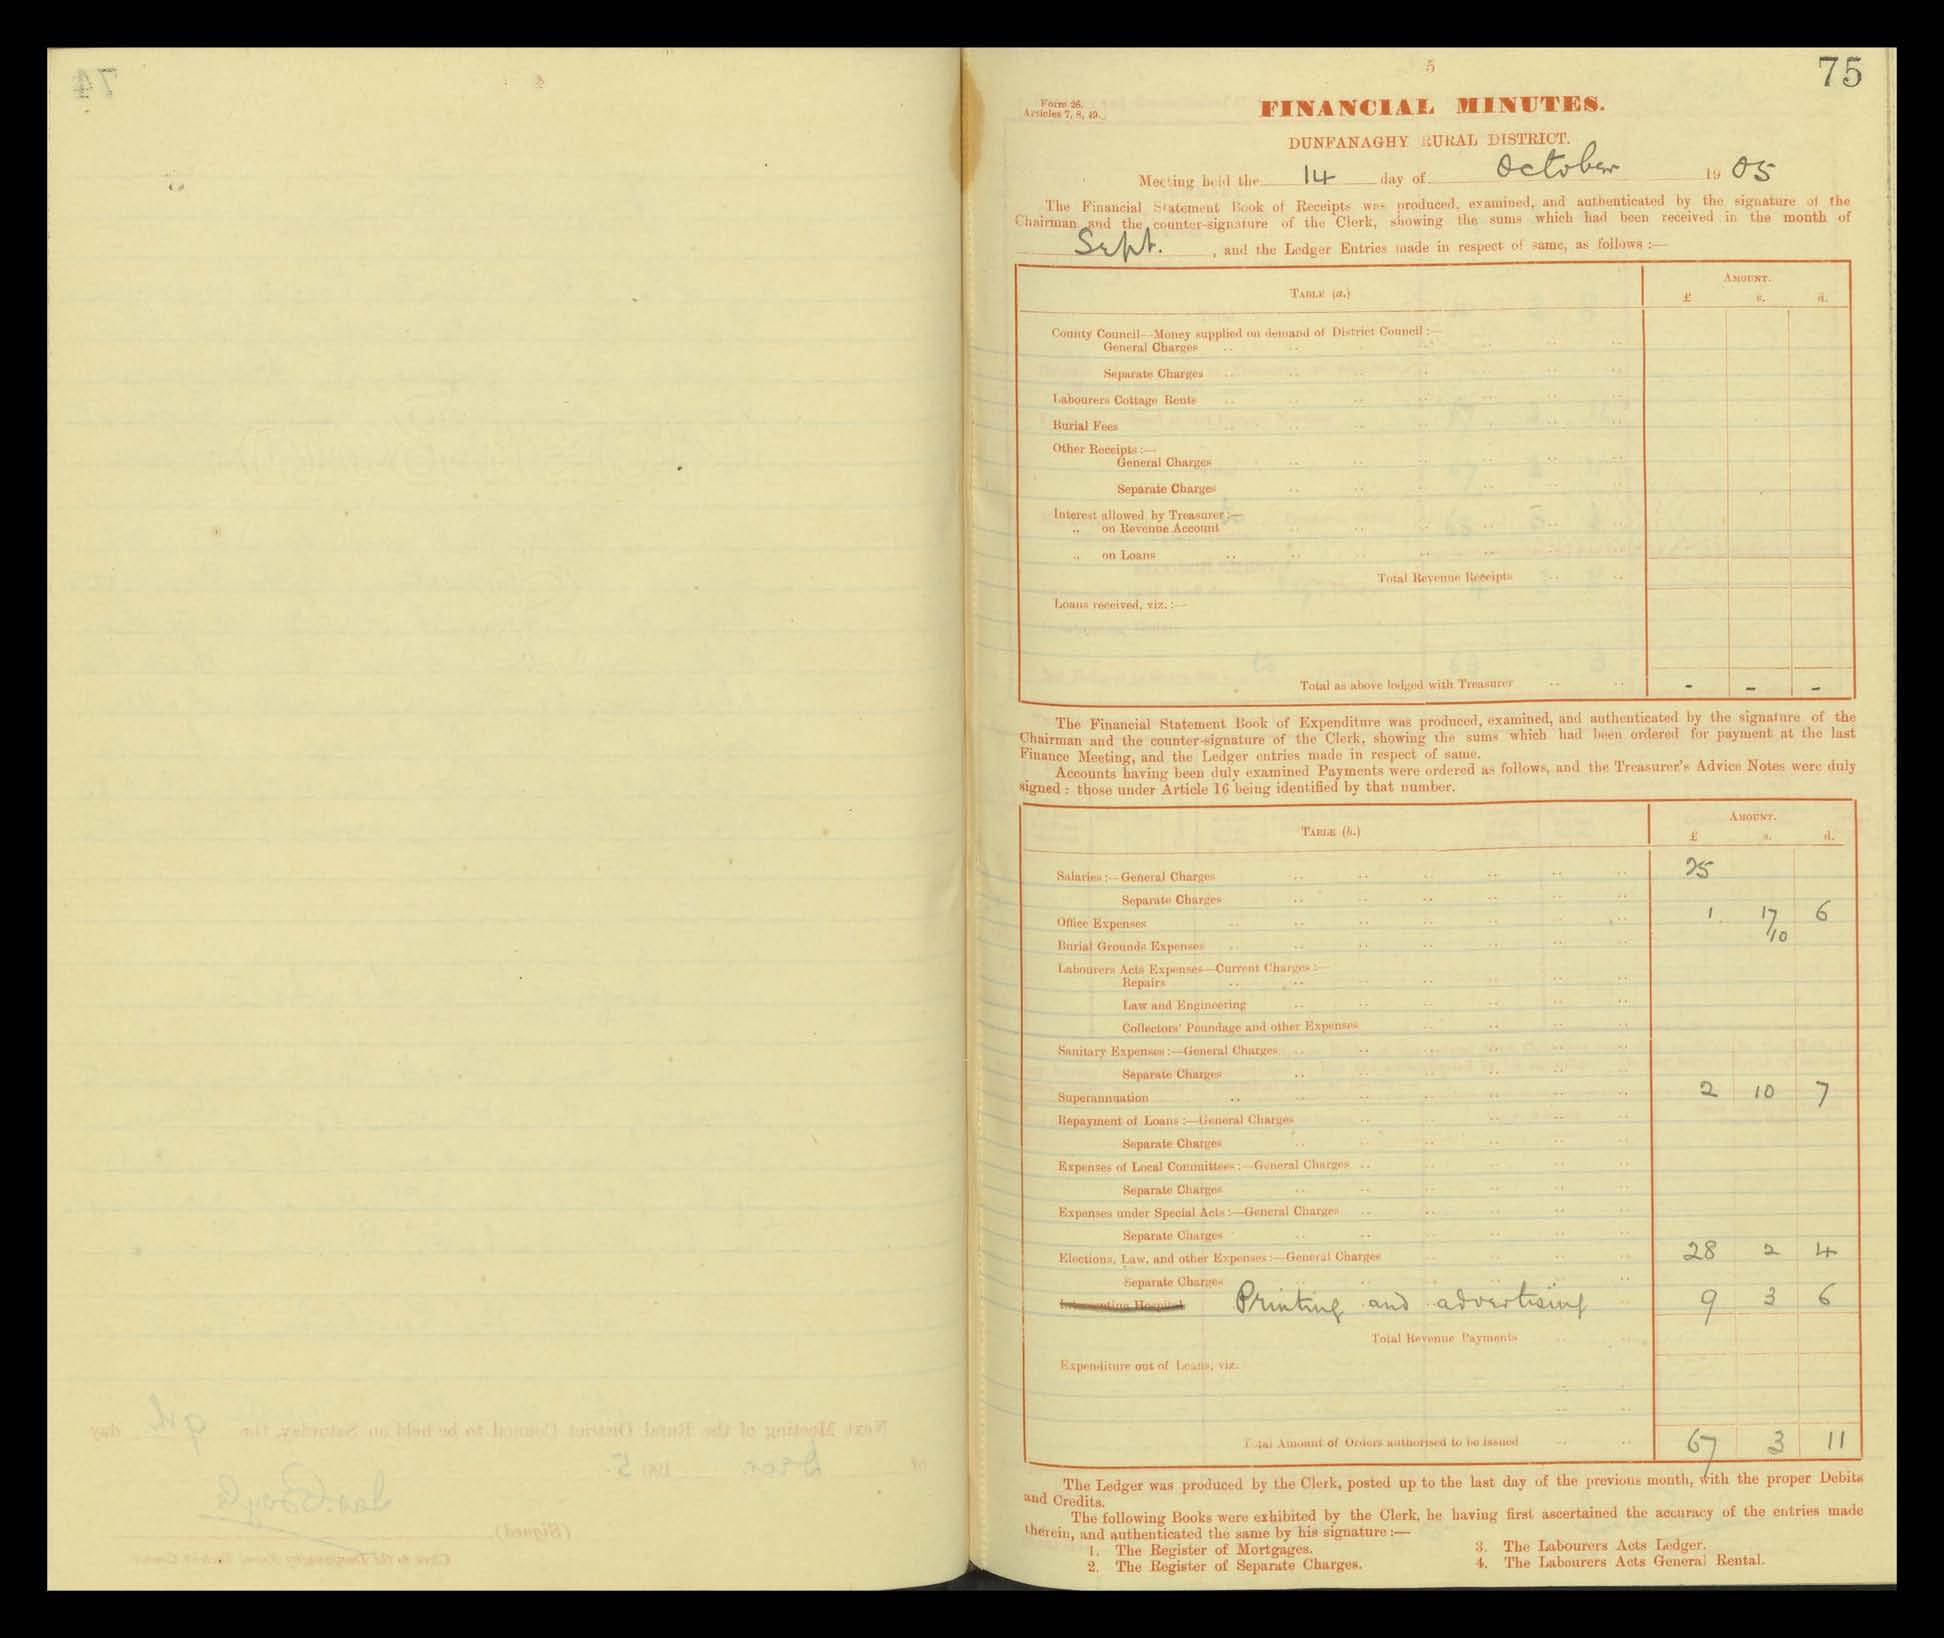 5
75
Form 26.
Articles 7, 8, 49.
FINANCIAL MINUTES.
DUNFANAGHY RURAL DISTRICT.
Meeting held the 14 day of October 1905
The Financial Statement Book of Receipts was produced, examined, and authenticated by the signature of the
Chairman and the counter-signature of the Clerk, showing the sums which had been received in the month of
Sept. , and the Ledger Entries made in respect of same, as follows :—
TABLE (a.) AMOUNT.
£ s. d.
County Council—Money supplied on demand of District Council :—
General Charges
Separate Charges
Labourers Cottage Rents
Burial Fees
Other Receipts :—
General Charges
Separate Charges
Interest allowed by Treasurer :—
„ on Revenue Account
„ on Loans
Total Revenue Receipts
Loans received, viz. :—
Total as above lodged with Treasurer - - -
The Financial Statement Book of Expenditure was produced, examined, and authenticated by the signature of the
Chairman and the counter-signature of the Clerk, showing the sums which had been ordered for payment at the last
Finance Meeting, and the Ledger entries made in respect of same.
Accounts having been duly examined Payments were ordered as follows, and the Treasurer's Advice Notes were duly
signed : those under Article 16 being identified by that number.
TABLE (b.) AMOUNT.
£ s. d.
Salaries :—General Charges 25
Separate Charges
Office Expenses 1 17 6
Burial Grounds Expenses /10
Labourers Acts Expenses—Current Charges :—
Repairs
Law and Engineering
Collectors' Poundage and other Expenses
Sanitary Expenses :—General Charges
Separate Charges
Superannuation 2 10 7
Repayment of Loans :—General Charges
Separate Charges
Expenses of Local Committees :—General Charges
Separate Charges
Expenses under Special Acts :—General Charges
Separate Charges
Elections, Law, and other Expenses :—General Charges 28 2 4
Separate Charges
Printing and advertising 9 3 6
Total Revenue Payments
Expenditure out of Loans, viz.
Total Amount of Orders authorised to be issued 67 3 11
The Ledger was produced by the Clerk, posted up to the last day of the previous month, with the proper Debits
and Credits.
The following Books were exhibited by the Clerk, he having first ascertained the accuracy of the entries made
therein, and authenticated the same by his signature :—
1. The Register of Mortgages. 3. The Labourers Acts Ledger.
2. The Register of Separate Charges. 4. The Labourers Acts General Rental.